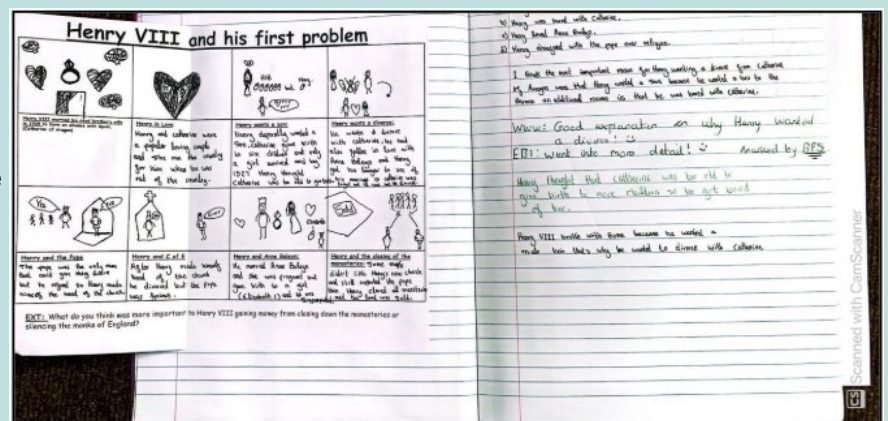 Henry VIII and his first problem
Henry VIII married his dead brother's wife
in 1509 to form an alliance with Spain,
Catherine of Aragon
Henry in Love:
Henry and Catherine were
a popular loving couple
and she ran the country
for him when he was
out of the country.
Henry wants a son:
Henry desperately wanted a
son, Catherine gave birth
to six children and only
a girl survived and by
1527 Henry thought
Catherine was too old to
Henry wants a divorce:
He wants a divorce
with Catherine, he had
also fallen in love with
Anne Boleyn and Henry
Yes
Son
Sold
Henry and the Pope
The pope was the only man
that could give Henry divorce
but he refused so Henry made
himself the head of the church
Henry and C of E
After Henry made himself
head of the church
he divorced but the Pope
was furious.
Henry and Anne Boleyn:
He married Anne Boleyn
and she was pregnant and
gave birth to a girl
(Elizabeth I) and he was
disappointed
Henry and the closing of the
monasteries: Some monks
didn't like Henry's new church
and still supported the pope
then Henry closed all monasteries
and the land was sold.
EXT: What do you think was more important to Henry VIII gaining money from closing down the monasteries or
silencing the monks of England?
b) Henry was bored with Catherine.
c) Henry loved Anne Boleyn.
d) Henry disagreed with the pope over religion.
I think the most important reason for Henry wanting a divorce from Catherine
of Aragon was that Henry wanted a son because he wanted a heir to the
throne an additional reason is that he was bored with Catherine.
WWW: Good explanation on why Henry wanted
a divorce!
EBI: went into more detail! marked by
Henry thought that Catherine was too old to
give birth to more children so he got bored
of her.
Henry VIII broke with Rome because he wanted a
male heir that's why he wanted to divorce with Catherine.
CS Scanned with CamScanner